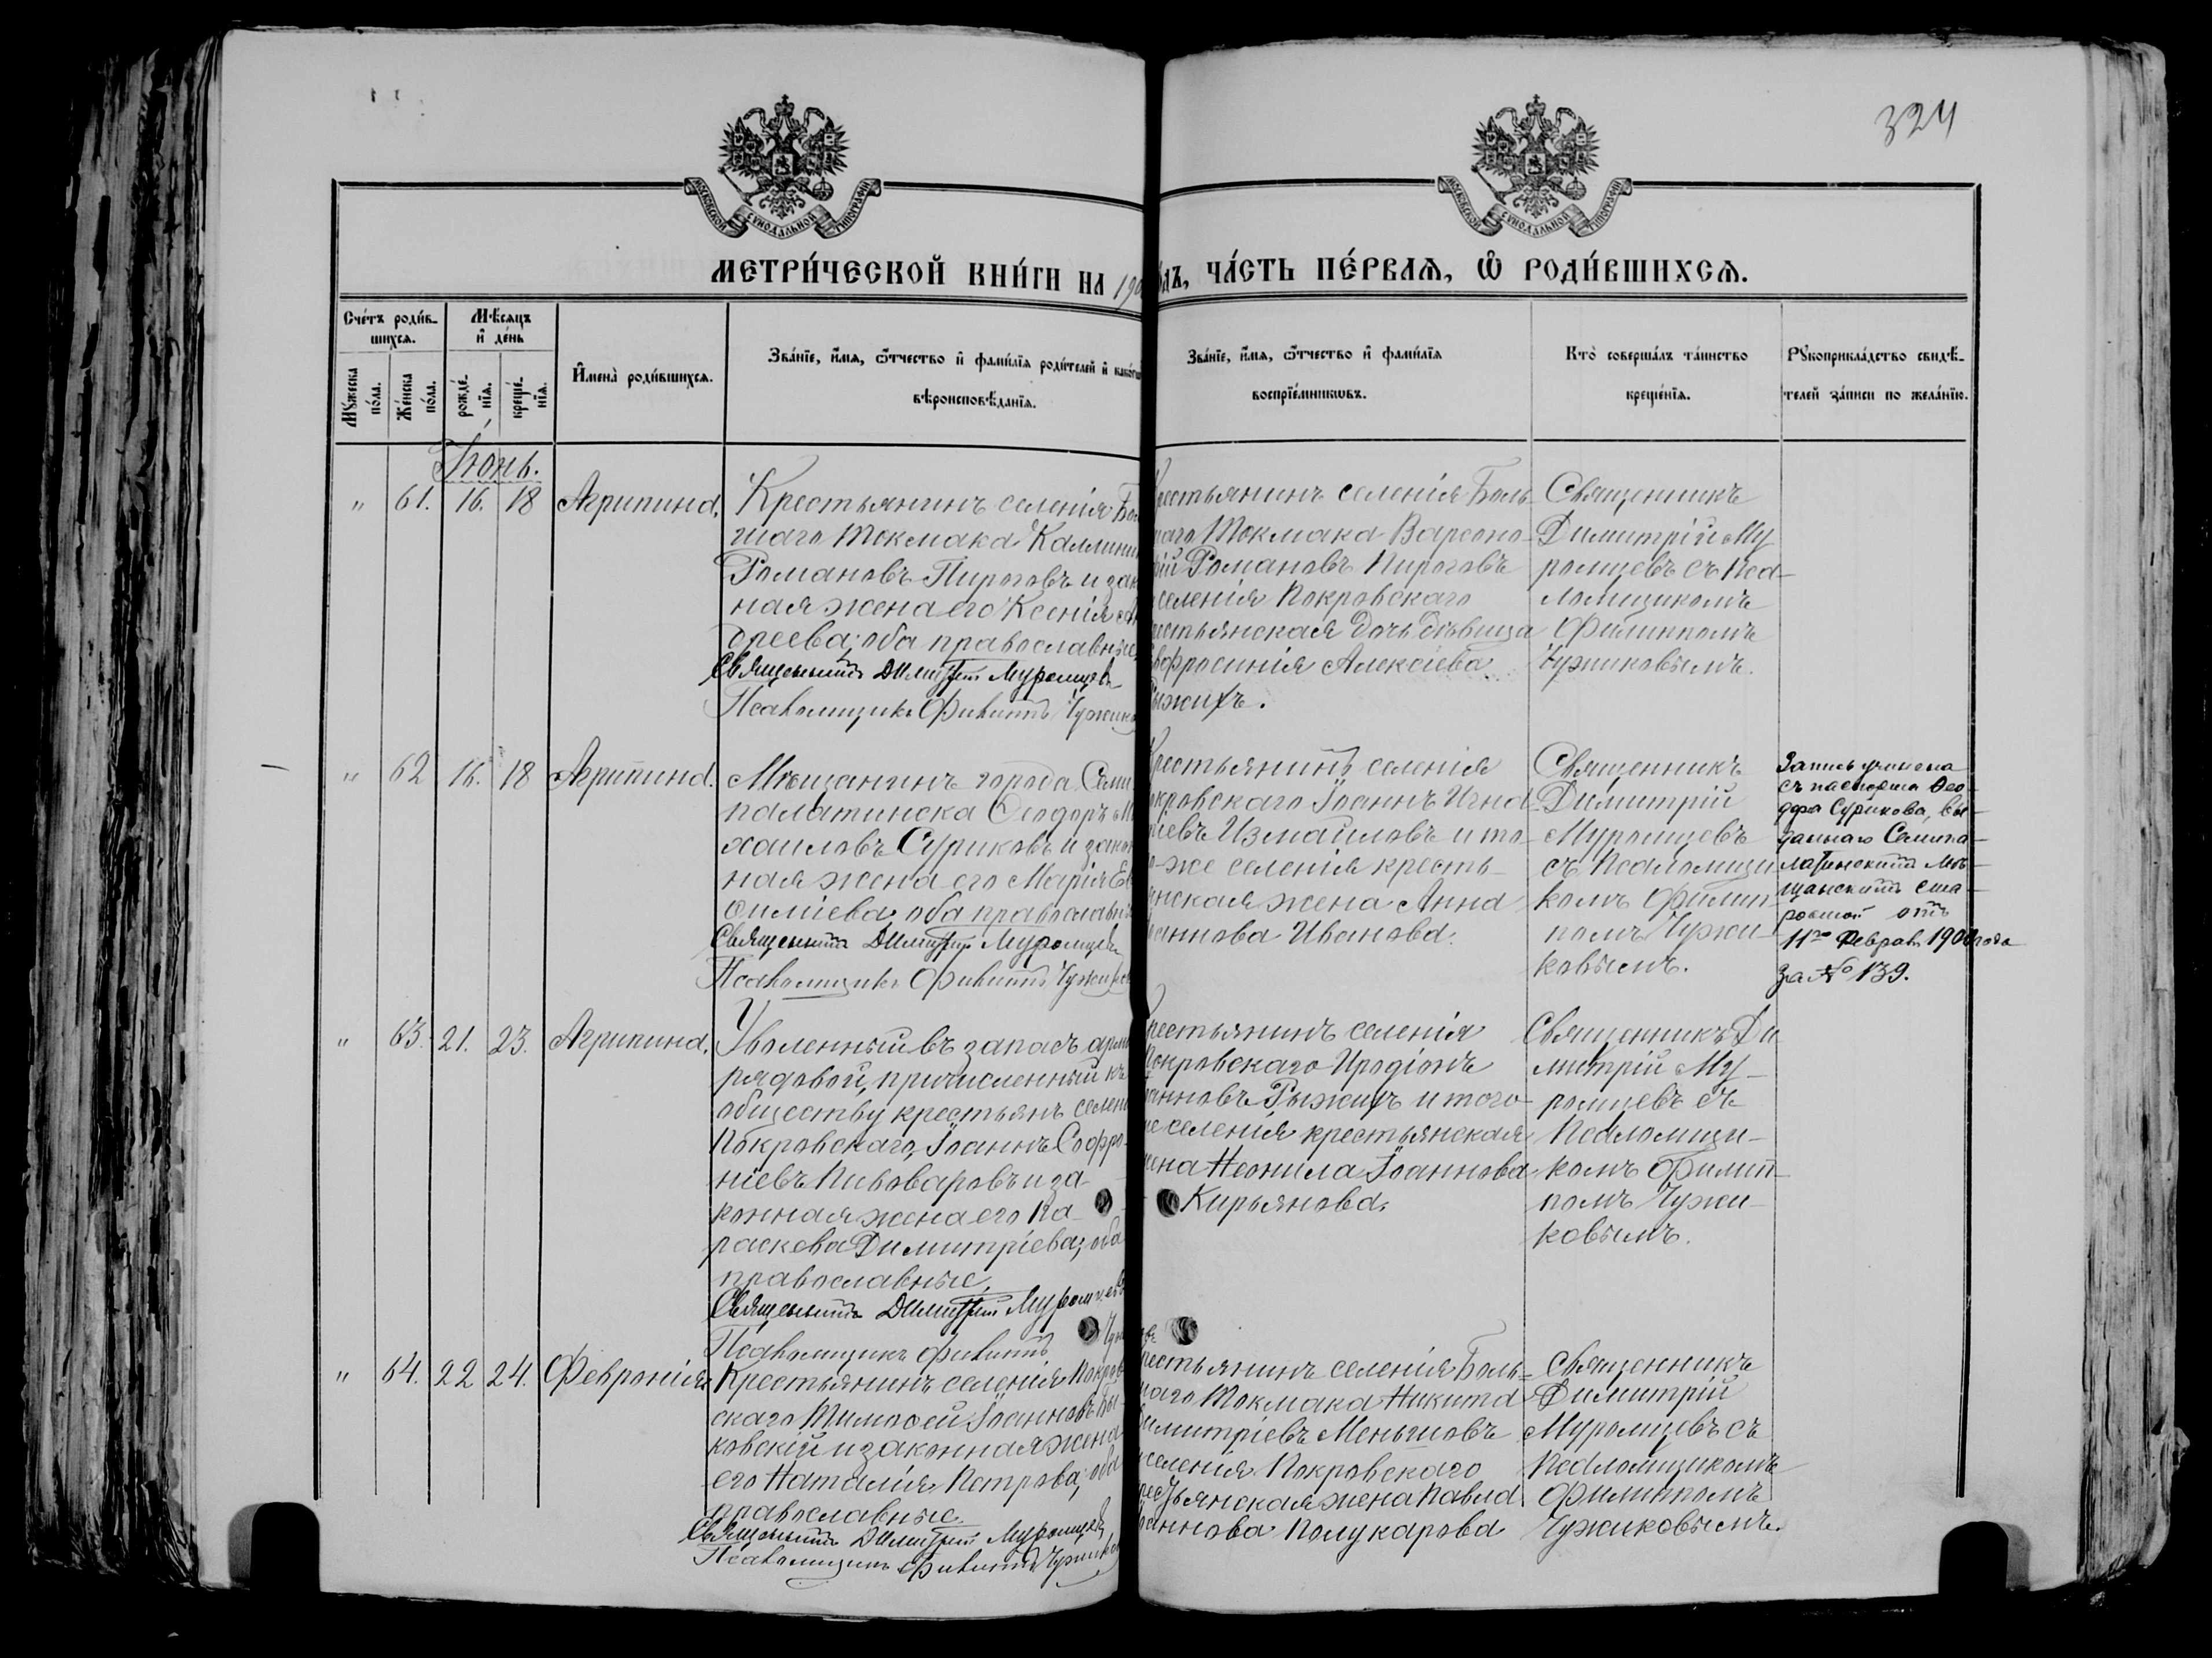 324
МОСКОВСКОЙ СУНОДАЛЬНОЙ ТИПОГРАФІИ
МОСКОВСКОЙ СУНОДАЛЬНОЙ ТИПОГРАФІИ
МЕТРИ́ЧЕСКОЙ КНИ́ГИ НА 190
ЧА́СТЬ ПЕ́РВАѦ, Ѽ РОДИ́ВШИХСѦ.
Сче́тъ роди́в-
шихсѧ.
Мѣ́сѧцъ
и҆ де́нь
Мꙋ́жеска по́ла.
Же́нска по́ла.
рожде́нїѧ.
креще́нїѧ.
И҆мена̀ роди́вшихсѧ.
Зва́нїе, и҆́мѧ, ѻ҆́тчество и҆ фами́лїѧ роди́телей и҆
вѣроисповѣ́данїѧ.
Зва́нїе, и҆́мѧ, ѻ҆́тчество и҆ фами́лїѧ
воспрїе́мникѡвъ.
Кто̀ соверша́лъ та́инство
креще́нїѧ.
Рꙋкоприкла́дство свидѣ́-
телей за́писи по жела́нїю.
Іюнь.
" 61. 16. 18 Агрипина.
Крестьянинъ селенія Бол
шаго Токмака Каллини
Романовъ Пироговъ и зак
ная жена его Ксенія
дреева; оба православные,
Священникъ Димитрій Муромцевъ
Псаломщикъ Филиппъ Чужико
рестьянинъ селенія Боль
шаго Токмака Варсоно-
фій Романовъ Пироговъ
селенія Покровскаго
рестьянская дочь девица
Евфросинія Алексіева
Рыжихъ.
Священникъ
Димитрій Му
ромцевъ съ Пса-
ломщикомъ
Филиппомъ
Чужиковымъ.
" 62 16. 18 Агрипина.
Мѣщанинъ города Семи
палатинска Феодоръ М
хаиловъ Суриковъ и закон
ная жена его Марія Ев
фиміева оба православн
Священникъ Димитрій Муромцевъ
Псаломщикъ Филиппъ Чужиков
рестьянинъ селенія
окровскаго Іоаннъ Игна
тіевъ Измайловъ и то
-же селенія кресть-
янская жена Анна
оаннова Иванова.
Священникъ
Димитрій
Муромцевъ
съ Псаломщи
комъ Филип-
помъ Чужи-
ковымъ.
Запись учинена
съ паспорта Фео-
дора Сурикова, вы-
даннаго Семипа-
латинскимъ Мѣ-
щанскимъ ста-
ростой отъ
11го Феврал. 1900 года
за № 139.
" 63. 21. 23. Агрипина.
Уволенный въ запасъ арм
рядовой, причисленный къ
обществу крестьянъ селен
Покровскаго, Іоаннъ Софро-
ніевъ Пивоваровъ и за-
конная жена его Па-
раскева Димитріева; оба
православные.
Священникъ Димитрій Муромцевъ
Псаломщикъ Филиппъ
рестьянинъ селенія
Покровскаго Иродіонъ
Іоанновъ Рыжихъ и того
же селенія крестьянская
жена Неонила Іоаннова
Кирьянова.
Священникъ Ди
митрій Му-
ромцевъ съ
Псаломщи-
комъ Филип-
помъ Чужи-
ковымъ.
" 64. 22 24. Февронія
Крестьянинъ селенія Покров
скаго Тимофей Іоанновъ Бы-
ковскій и законная жена
его Наталія Петрова; оба
православные.
Священникъ Димитрій Муромцевъ
Псаломщикъ Филиппъ Чужико
рестьянинъ селенія Боль-
шаго Токмака Никита
Димитріевъ Меньшовъ
селенія Покровскаго
рестьянская жена Павла
Іоаннова Полукарова
Священникъ
Димитрій
Муромцевъ съ
Псаломщикомъ
Филиппомъ
Чужиковымъ.